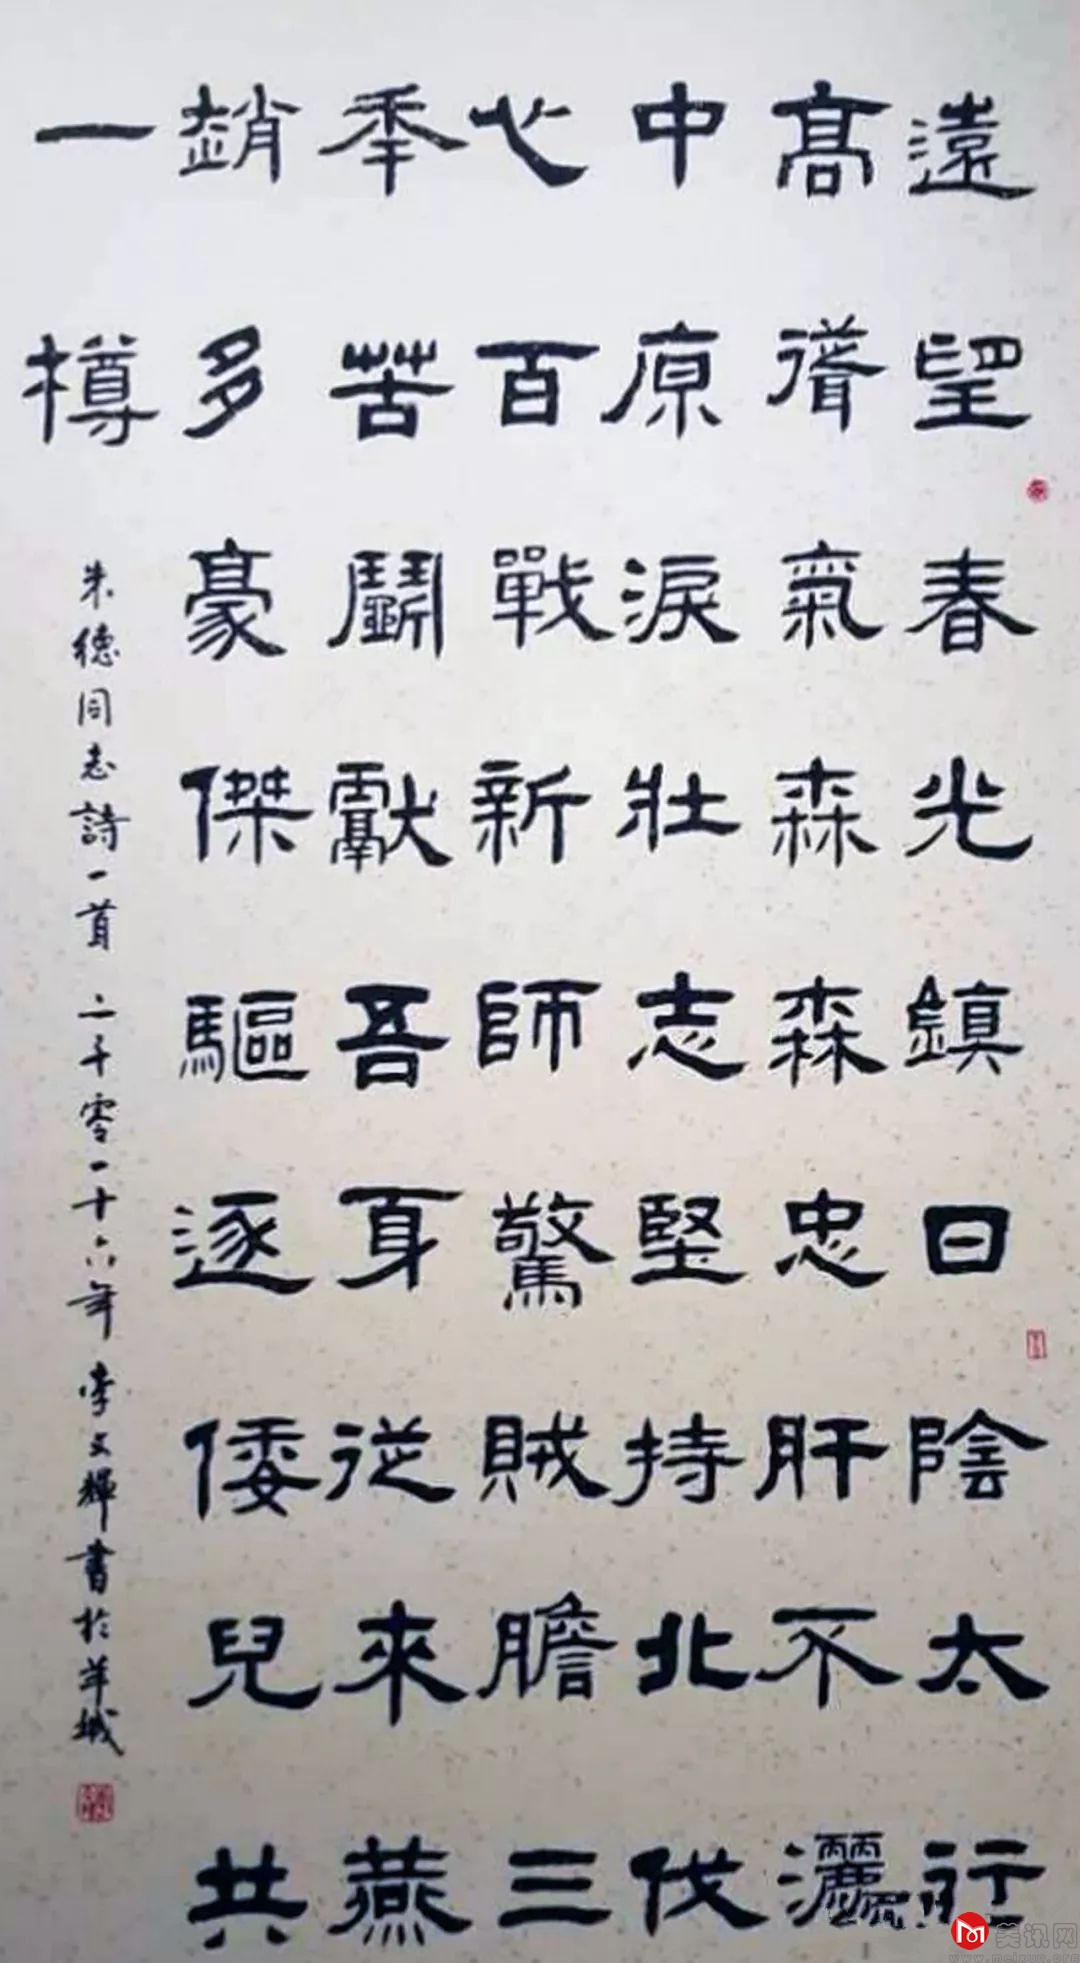 遠望春光鎮日陰太行
高聳氣森森忠肝不灑
中原淚壯志堅持北伐
心百戰新師驚賊膽三
季苦鬭獻吾身從來燕
趙多豪傑驅逐倭兒共
一樽
朱德同志詩一首 二千零一十六年李文輝書於羊城
美讯网